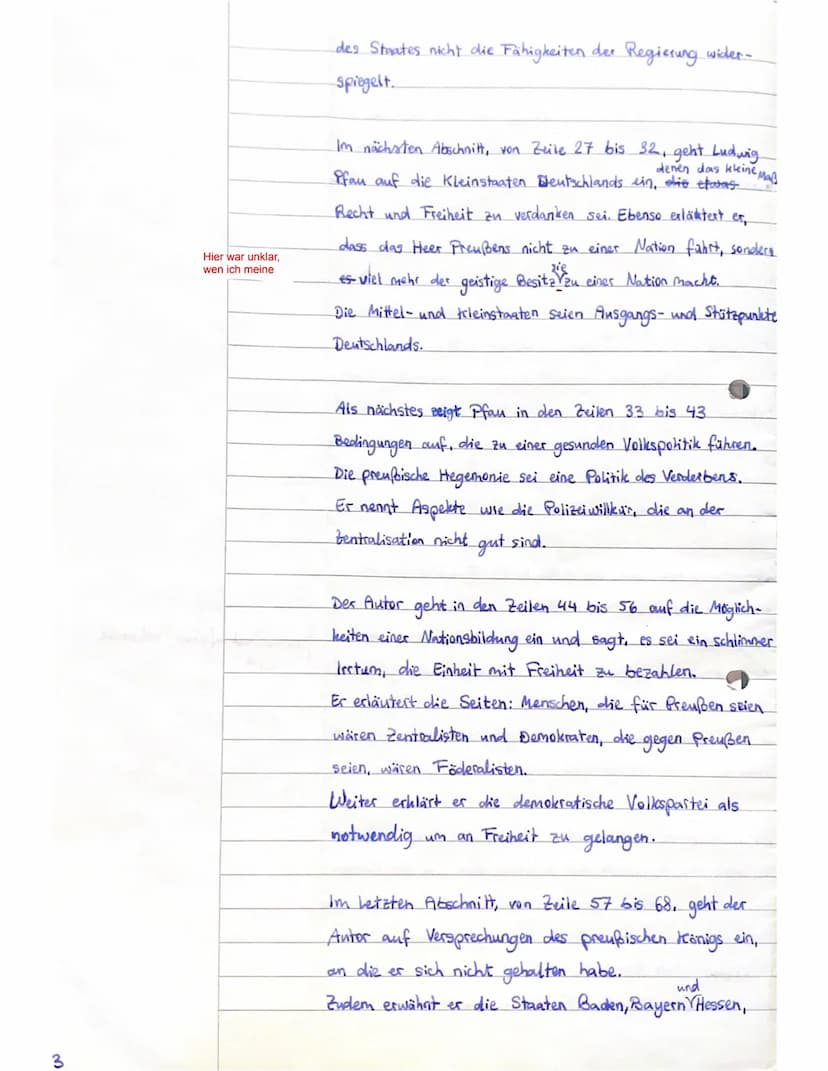 des Staates nicht die Fähigkeiten der Regierung wider-
spiegelt.
Im nächsten Abschnitt, von Zeile 27 bis 32, geht Ludwig
denen das kleine Maß
Pfau auf die Kleinstaaten Deutschlands ein, die etwas
Recht und Freiheit zu verdanken sei. Ebenso erläutert er,
dass das Heer Preußens nicht zu einer Nation führt, sondern
Hier war unklar,
wen ich meine
sie
es viel mehr der geistige Besitz zu einer Nation macht.
Die Mittel- und Kleinstaaten seien Ausgangs- und Stützpunkte
Deutschlands.
Als nächstes zeigt Pfau in den Zeilen 33 bis 43
Bedingungen auf, die zu einer gesunden Volkspolitik führen.
Die preußische Hegemonie sei eine Politik des Verderbens.
Er nennt Aspekte wie die Polizeiwillkür, die an der
Zentralisation nicht gut sind.
Der Autor geht in den Zeilen 44 bis 56 auf die Möglich-
keiten einer Nationsbildung ein und sagt, es sei ein schlimmer
Irrtum, die Einheit mit Freiheit zu bezahlen.
Er erläutert die Seiten: Menschen, die für Preußen seien
wären Zentralisten und Demokraten, die gegen Preußen
seien, wären Föderalisten.
Weiter erklärt er die demokratische Volkspartei als
notwendig um an Freiheit zu gelangen.
Im letzten Abschnitt, von Zeile 57 bis 68, geht der
Autor auf Versprechungen des preußischen Königs ein,
an die er sich nicht gehalten habe.
und
Zudem erwähnt er die Staaten Baden, Bayern Hessen,
3